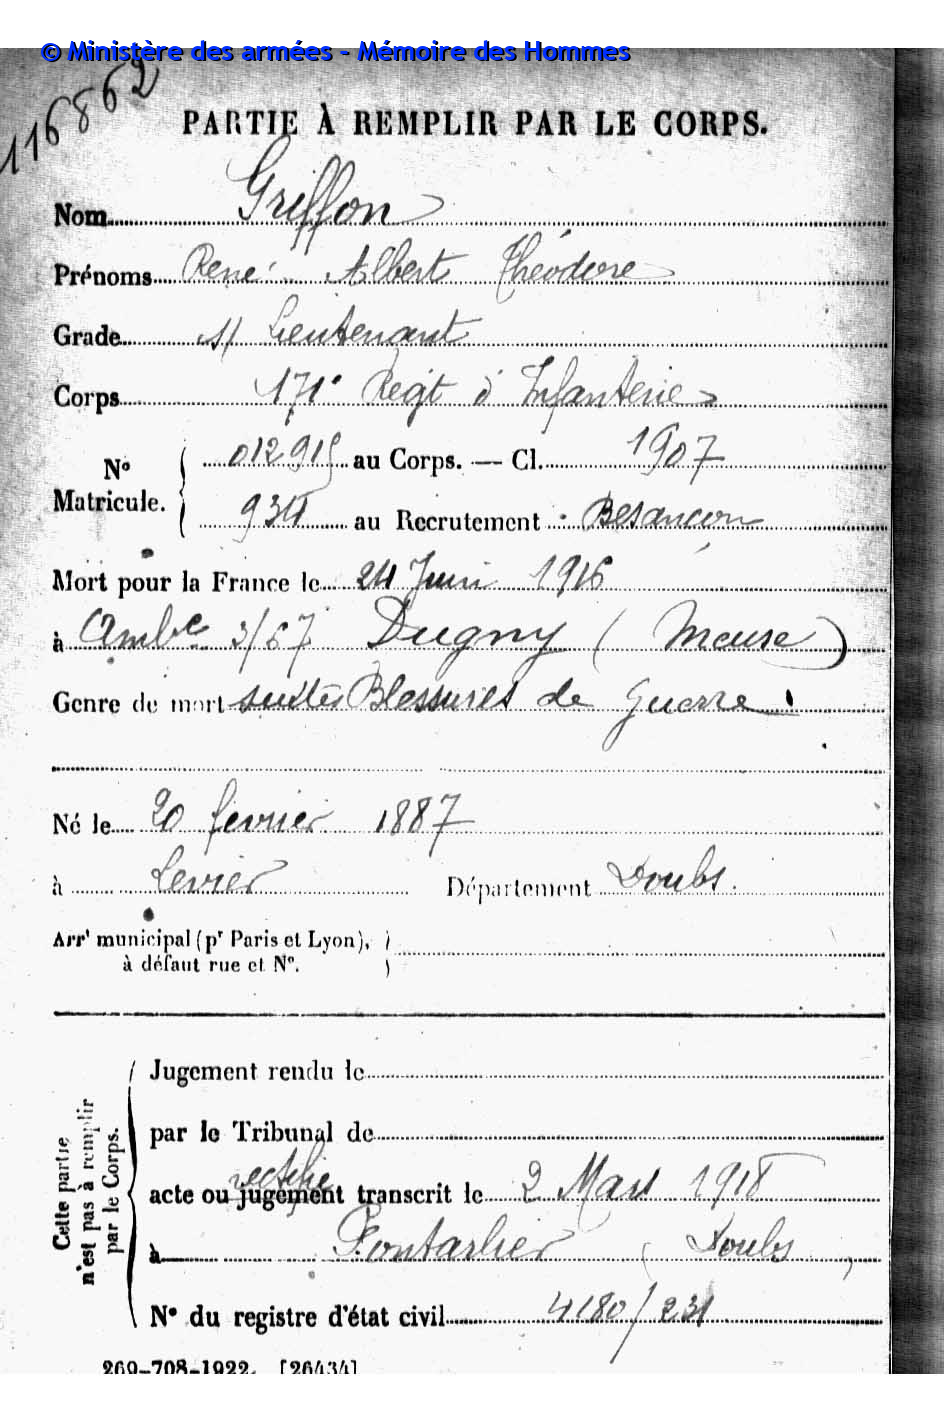 © Ministère des armées - Mémoire des Hommes
116862
PARTIE À REMPLIR PAR LE CORPS.
Nom Griffon
Prénoms René Albert Théodore
Grade s/ Lieutenant
Corps 171e Regt d'Infanterie
N° Matricule. 012915 au Corps. — Cl. 1907
934 au Recrutement Besançon
Mort pour la France le 24 Juin 1916
à Ambce 3/67 Dugny (Meuse)
Genre de mort suites Blessures de guerre
Né le 20 février 1887
à Levier Département Doubs.
Arrt municipal (pr Paris et Lyon),
à défaut rue et N°.
Cette partie
n'est pas à remplir
par le Corps.
Jugement rendu le
par le Tribunal de
rectifié
acte ou jugement transcrit le 2 Mars 1918
à Pontarlier (Doubs)
N° du registre d'état civil 4180/231
269-708-1922. [26434]